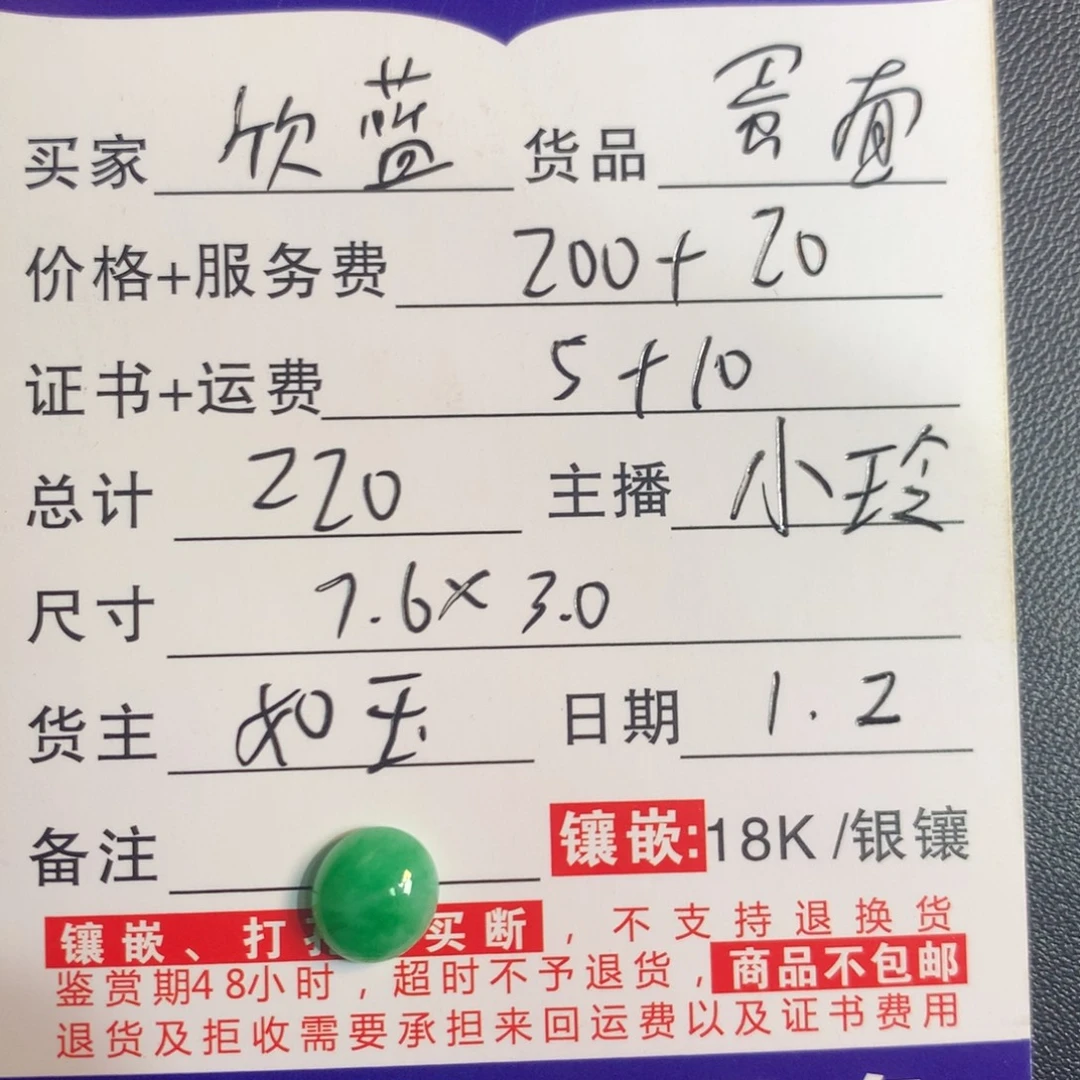 买家 欣蓝 货品 蛋面
价格+服务费 200+20
证书+运费 5+10
总计 220 主播 小玲
尺寸 7.6×3.0
货主 如玉 日期 1.2
备注 镶嵌:18K/银镶
镶嵌、打 买断，不支持退换货
鉴赏期48小时，超时不予退货，商品不包邮
退货及拒收需要承担来回运费以及证书费用